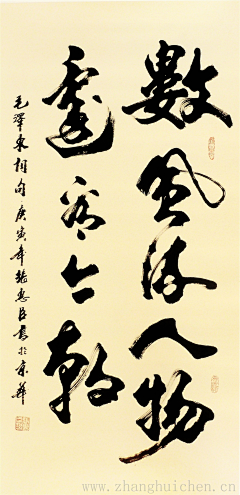 數風流人物
還看今朝
毛澤東詞句庚寅年張惠臣書於京華
www.zhanghuichen.cn